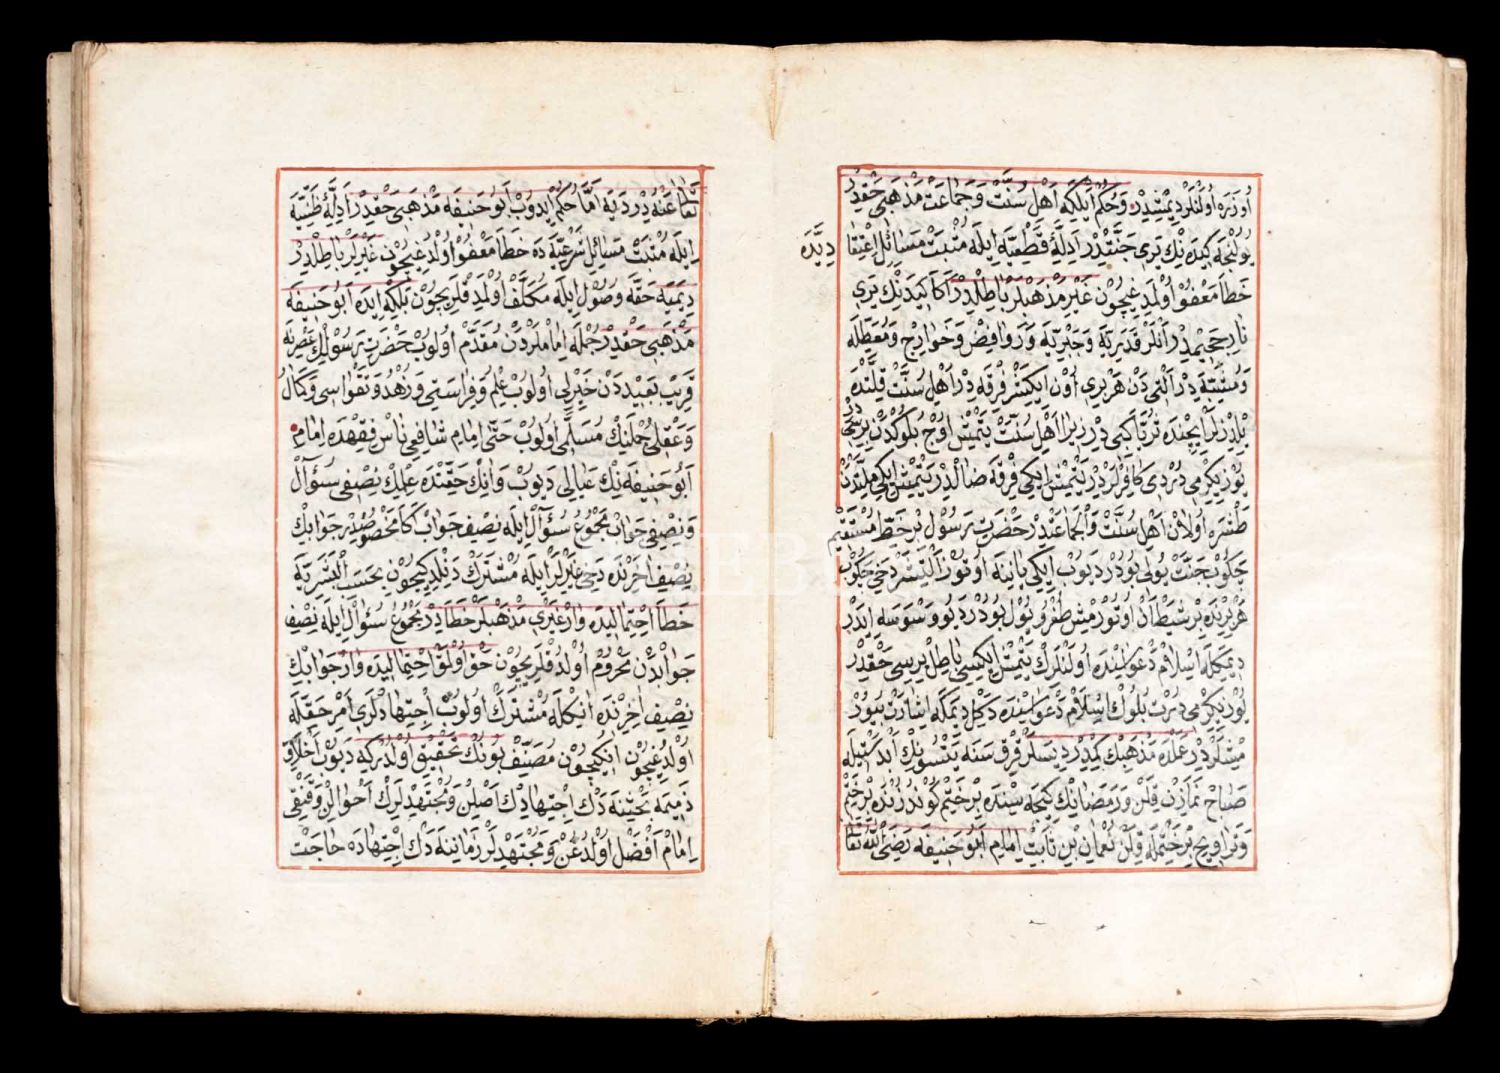 اُوزَرَه اُولَنْلَرْ دِيمْتِنْدِرْ وَحُكْم اَيلَكَه اَهْلِ سُنَّتْ وَجَمَاعَتْ مَذْهَبِى حَقْدِرْ
بُولِنْجَه كِيدَه نِكْ يَرِى جَنَّتْدِرْ اَدِلَّۀِ قَطْعِيَّه اِيلَه مُثْبَتْ مَسَائِلِ اِعْتِقَا
دِيَّدَه
خَطَا مَعْفُوْ اُولْمَدِيغِيچُونْ غَيْرِ مَذْهَبْلَرْ بَاطِلْدِرْ اَكَا كِيدَنْكْ يَرِى
نَارِ جَحِيمْدِرْ اَنْلَرْ قَدَرِيَّه وَجَبْرِيَّه وَرَوَافِضْ وَخَوَارِجْ وَمُعَطِّلَه
وَمُشَبِّهَه دِرْ اَلْتِى دَنْ هَرْ بِرِى اُونْ اِيكِيشَرْ فِرْقَه دِرْ اَهْلِ سُنَّتْ
زِيرَا اَهْلِ سُنَّتْ يَتْمِشْ اُوچْ بُلُوكْدَنْ بِرِيسِى
يُوزْ يِكِرْمِى دُرْدِى كَافِرْلَرْدِرْ يَتْمِشْ اِيكِى فِرْقَه ضَالْدِرْ يَتْمِشْ اِيكِى مِلَّتْدَنْ
اُولَانْ اَهْلِ سُنَّتْ وَالْجَمَاعَتْدِرْ حَضْرَتِ رَسُولْ بِرْ خَطِّ مُسْتَقِيمْ
چَكُوبْ جَنَّتْ يُولِى بُودُرْ دَيُوبْ اِيكِى يَانِنَه اُوتُوزْ اَلْتِيشَرْ دَخِى چَكُوبْ
هَرْ بِرِنْدَه بِرْ شَيْطَانْ اُوتُورْمِشْ طُغْرُو يُولْ بُودُرْ دَيُو وَسْوَسَه اِيدَرْ
دِيمَكَلَه اِسْلَامْ دَعْوَاسِنْدَه اُولَنْلَرِكْ يَتْمِشْ اِيكِيسِى بَاطِلْ بِرِيسِى حَقْدِرْ
يُوزْ يِكِرْمِى دُرْتْ بُلُوكْ اِسْلَامْ دَعْوَاسِنْدَه دَكِلْ دِيمَكَه اِشَارَتْ بُيُورْ
مِشْلَرْدِرْ عَمَلْدَه مَذْهَبِكْ كِمْدِرْ دِيسَلَرْ قِرْقْ سَنَه يَتْسُونِكْ اَبْدَسْتِيلَه
صَبَاحْ نَمَازِنْ قِلَنْ وَرَمَضَانِكْ كِيجَه سِنْدَه بِرْ خَتِمْ كُونْدُزِنْدَه بِرْ خَتِمْ
وَتَرَاوِيحْ بِرْ خَتِمْلَه قِلَنْ نُعْمَانْ بِنْ ثَابِتْ اِمَامِ اَبُو حَنِيفَه رَضِىَ اللهُ تَعَا
تَعَالَى عَنْهُ دِرْ دَيَه اَمَّا حُكْمْ اِيدُوبْ اَبُو حَنِيفَه مَذْهَبِى حَقْدِرْ اَدِلَّۀِ ظَنِّيَّه
اِيلَه مُثْبَتْ مَسَائِلِ شَرْعِيَّه دَه خَطَا مَعْفُوْ اُولْدُغِيچُونْ غَيْرِلَرْ بَاطِلْدِرْ
دِيمَيَه حَقَّه وُصُولْ اِيلَه مُكَلَّفْ اُولْمَدِقْلَرِيچُونْ بَلْكِه اِيدَه اَبُو حَنِيفَه
مَذْهَبِى حَقْدِرْ جُمْلَه اِمَامْلَرْدَنْ مُقَدَّمْ اُولُوبْ حَضْرَتِ رَسُولِكْ عَصْرِنَه
قَرِيبْ بَعِيدْدَنْ خَيْرلِى اُولُوبْ عِلْمْ وَفِرَاسَتِى وَزُهْدُ وَتَقْوَاسِى وَكَمَالُ
وَعَقْلِى جُمْلَنِكْ مُسَلَّمِى اُولُوبْ حَتَّى اِمَامِ شَافِعِى نَاسْ فِقْهْدَه اِمَامِ
اَبُو حَنِيفَه نِكْ عَيَالِى دَيُوبْ وَانِكْ حَقِّنْدَه عِلْمِكْ نِصْفِى سُؤَالْ
وَنِصْفِى جَوَابْ مَجْمُوعُ سُؤَالْ اِيلَه نِصْفِ جَوَابْ اَكَا مَخْصُوصْدِرْ جَوَابِكْ
نِصْفِ اَخِرِنْدَه دَخِى غَيْرْلَرْ اِيلَه مُشْتَرَكْ دِنِلْدِكِيچُونْ بِحَسَبِ الْبَشَرِيَّه
خَطَا اِحْتِمَالِيدَه وَارْ غَيْرِى مَذْهَبْلَرْ خَطَادِرْ مَجْمُوعُ سُؤَالْ اِيلَه نِصْفِ
جَوَابْدَنْ مَحْرُومْ اُولْدُقْلَرِيچُونْ حَقْ اُولْمَقْ اِحْتِمَالِيدَه وَارْ جَوَابِكْ
نِصْفِ اَخِرِنْدَه اَنِكْلَه مُشْتَرَكْ اُولُوبْ اِجْتِهَادْلَرِى اَمْرِ حَقْلَه
اُولْدُغِيچُونْ اَنِكِيچُونْ مُصَنِّفْ بُونِكْ تَحْقِيقِ اُولْدُرْكِه دَيُوبْ اَخْلَاقِ
ذَمِيمَه بَحْثِنَه دَكْ اِجْتِهَادِكْ اَصْلِنْ وَمُجْتَهِدْلَرِكْ اَحْوَالِنْ وَقَنْغِى
اِمَامْ اَفْضَلْ اُولْدُغُنْ وَمُجْتَهِدْلَرْ زَمَانِنَه دَكْ اِجْتِهَادَه حَاجَتْ